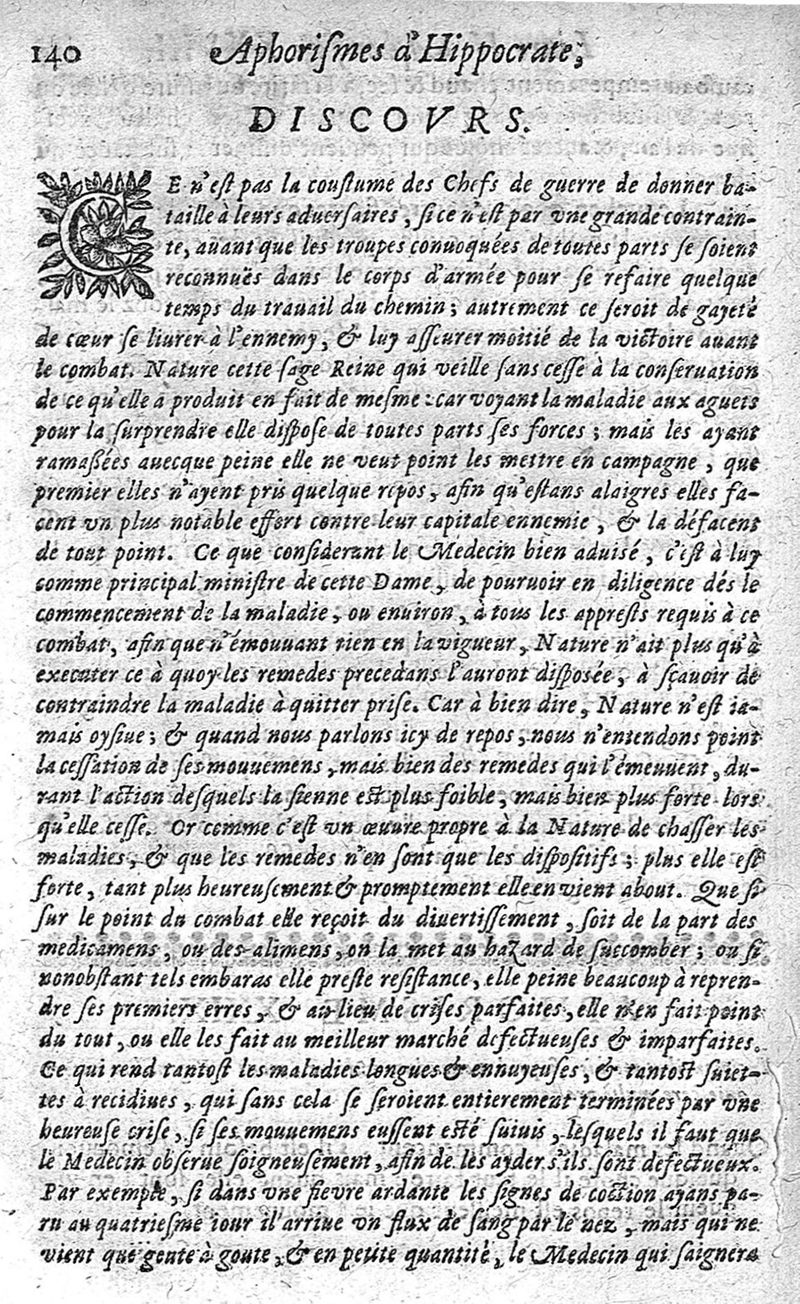 140 Aphorismes d'Hippocrate,
DISCOVRS.
CE n'est pas la coustume des Chefs de guerre de donner ba-
taille à leurs aduersaires, si ce n'est par vne grande contrain-
te, auant que les troupes conuoquées de toutes parts se soient
reconnuës dans le corps d'armée pour se refaire quelque
temps du trauail du chemin; autrement ce seroit de gayeté
de cœur se liurer à l'ennemy, & luy asseurer moitié de la victoire auant
le combat. Nature cette sage Reine qui veille sans cesse à la conseruation
de ce qu'elle a produit en fait de mesme: car voyant la maladie aux aguets
pour la surprendre elle dispose de toutes parts ses forces; mais les ayant
ramassées auecque peine elle ne veut point les mettre en campagne, que
premier elles n'ayent pris quelque repos, afin qu'estans alaigres elles fa-
cent vn plus notable effort contre leur capitale ennemie, & la défacent
de tout point. Ce que considerant le Medecin bien aduisé, c'est à luy
comme principal ministre de cette Dame, de pouruoir en diligence dés le
commencement de la maladie, ou enuiron, à tous les apprests requis à ce
combat, afin que n'émouuant rien en la vigueur, Nature n'ait plus qu'à
executer ce à quoy les remedes precedans l'auront disposée, à sçauoir de
contraindre la maladie à quitter prise. Car à bien dire, Nature n'est ia-
mais oysiue; & quand nous parlons icy de repos, nous n'entendons point
la cessation de ses mouuemens, mais bien des remedes qui l'émeuuent, du-
rant l'action desquels la sienne est plus foible, mais bien plus forte lors
qu'elle cesse. Or comme c'est vn œuure propre à la Nature de chasser les
maladies, & que les remedes n'en sont que les dispositifs; plus elle est
forte, tant plus heureusement & promptement elle en vient about. Que si
sur le point du combat elle reçoit du diuertissement, soit de la part des
medicamens, ou des alimens, on la met au hazard de succomber; ou si
nonobstant tels embaras elle preste resistance, elle peine beaucoup à repren-
dre ses premiers erres, & au lieu de crises parfaites, elle n'en fait point
du tout, ou elle les fait au meilleur marché defectueuses & imparfaites.
Ce qui rend tantost les maladies longues & ennuyeuses, & tantost suiet-
tes à recidiues, qui sans cela se seroient entierement terminées par vne
heureuse crise, si ses mouuemens eussent esté suiuis, lesquels il faut que
le Medecin obserue soigneusement, afin de les ayder s'ils sont defectueux.
Par exemple, si dans vne fievre ardante les signes de coction ayans pa-
ru au quatriesme iour il arriue vn flux de sang par le nez, mais qui ne
vient que goute à goute, & en petite quantité, le Medecin qui saignera